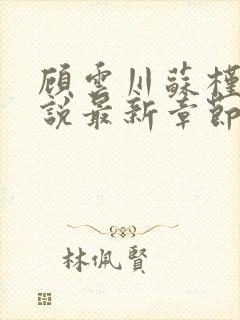 顾雲川蘇槿
說最新章節
林佩賢